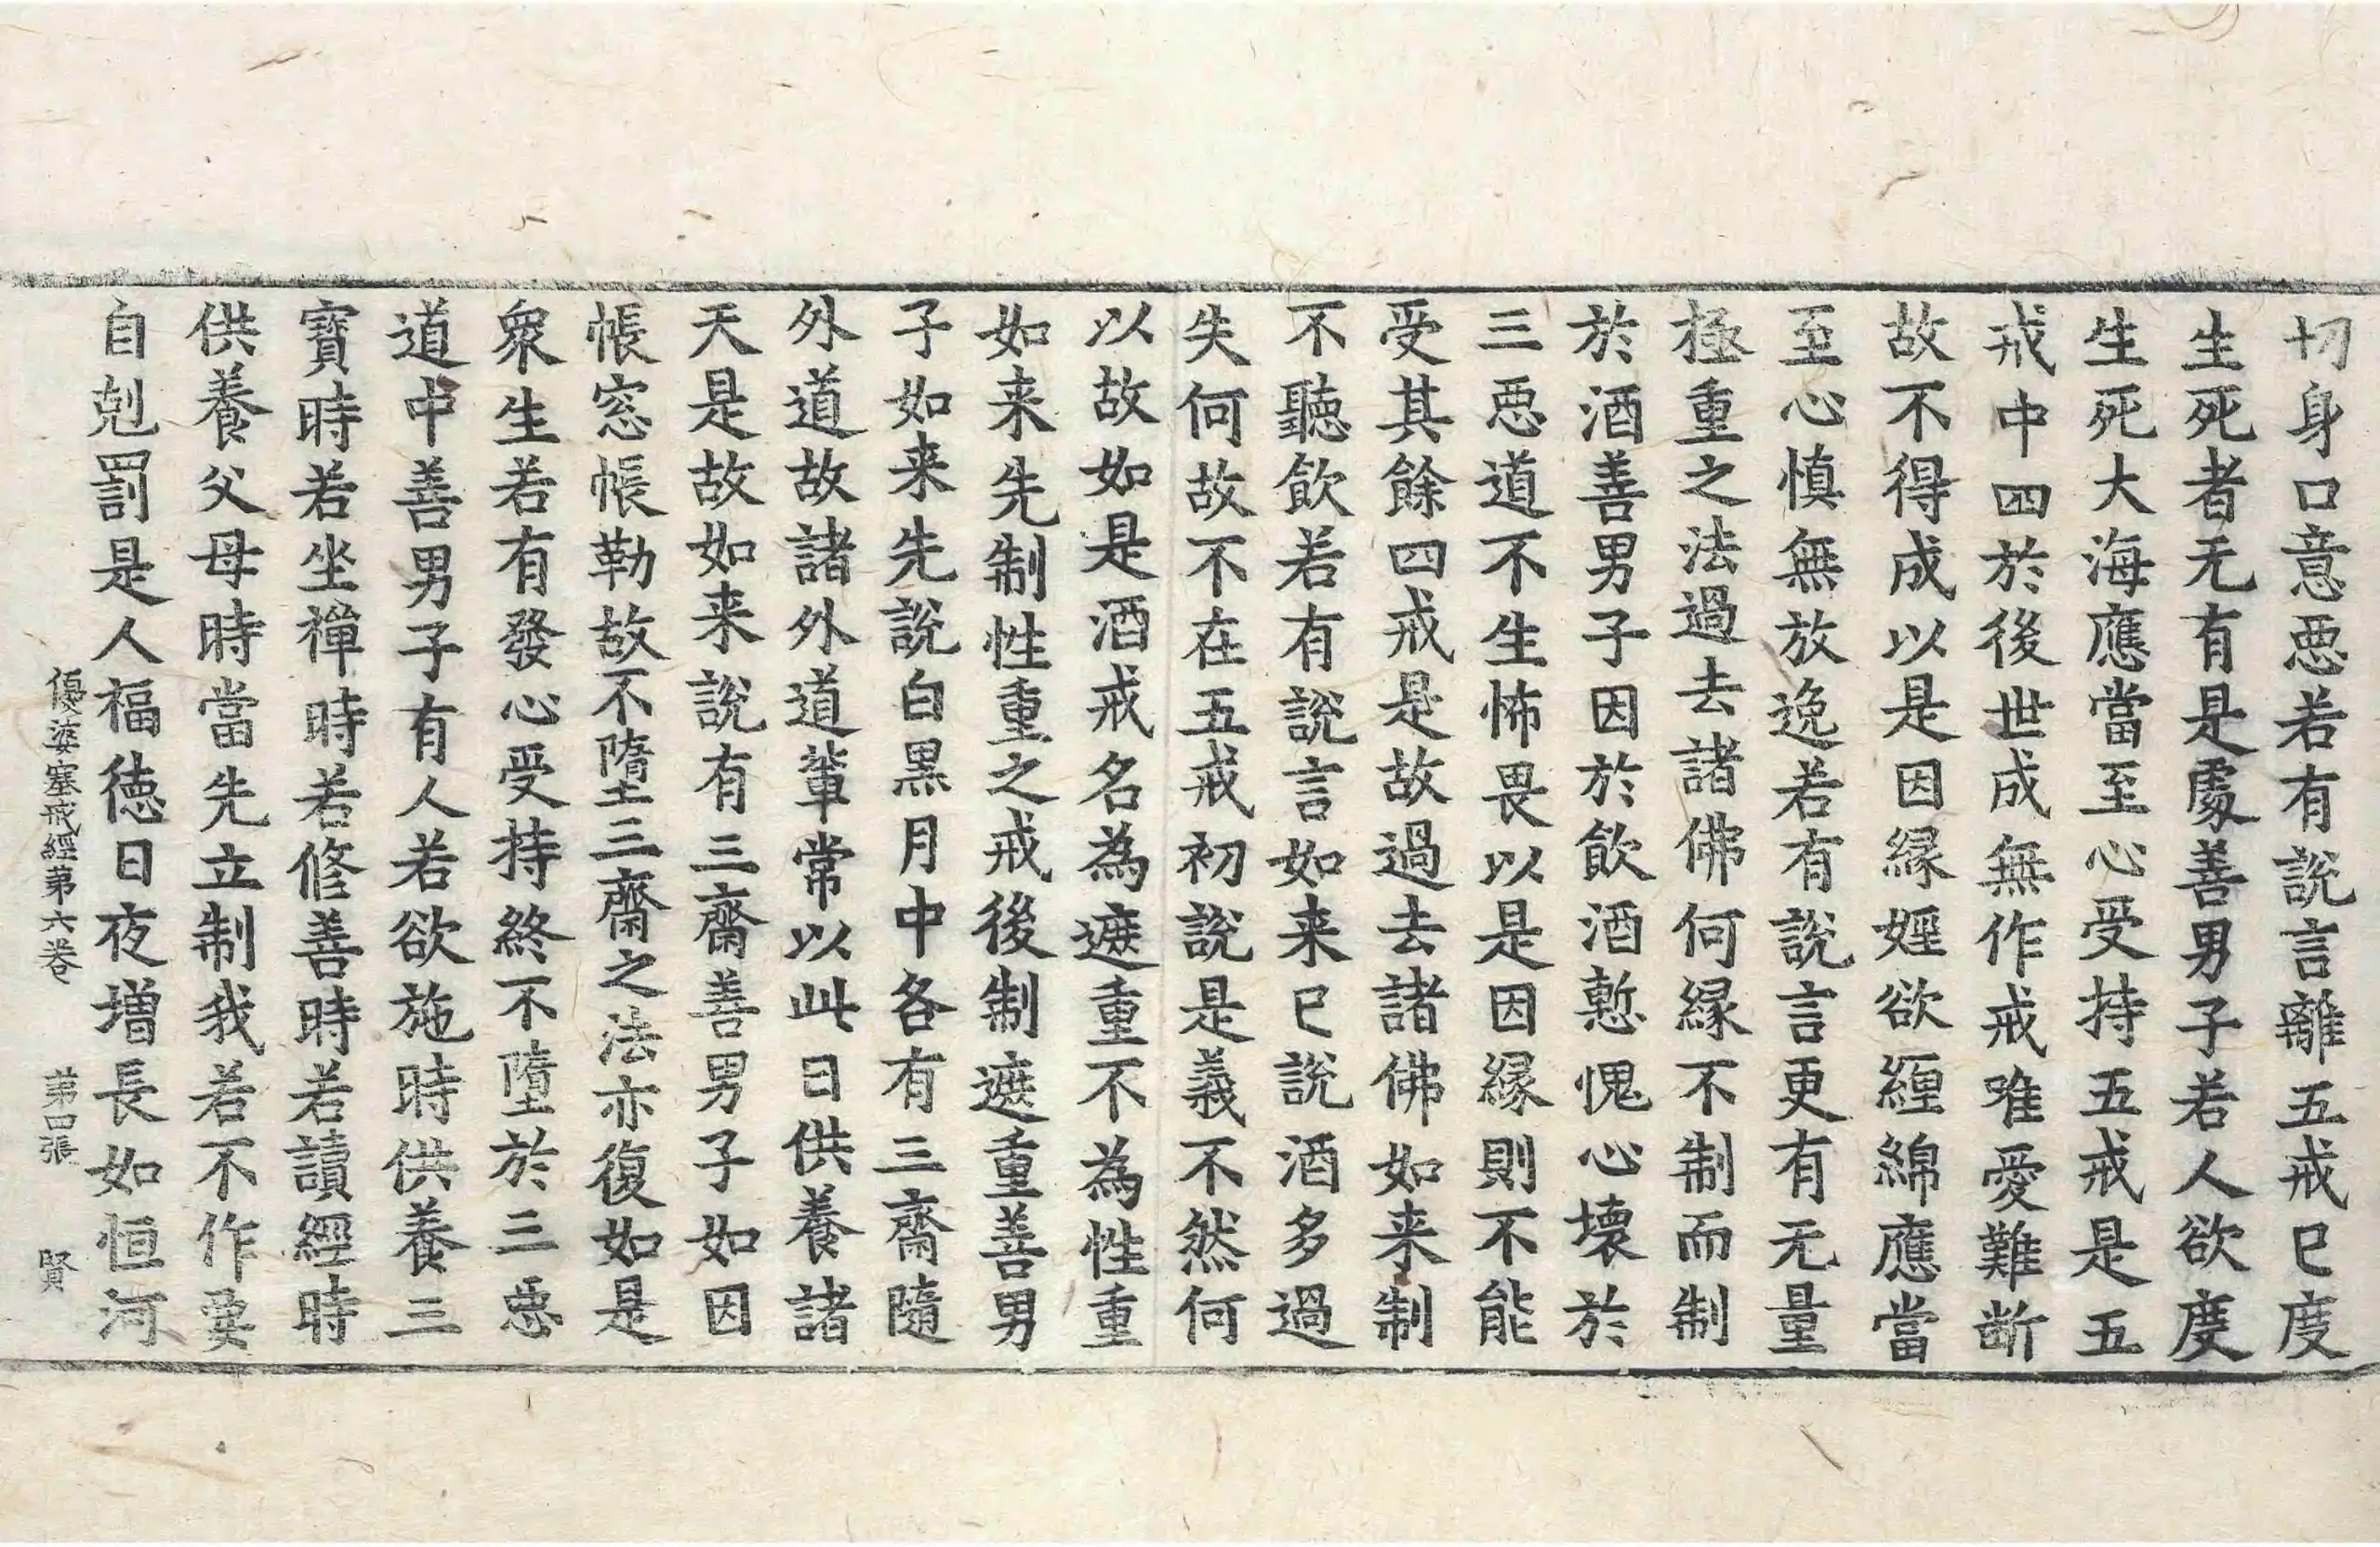 切身口意悪若有說言離五戒已度
生死者无有是處善男子若人欲度
生死大海應當至心受持五戒是五
戒中四於後世成無作戒唯愛難断
故不得成以是因縁婬欲纒綿應當
至心慎無放逸若有說言更有无量
極重之法過去諸佛何縁不制而制
於酒善男子因於飲酒慙愧心壊於
三悪道不生怖畏以是因縁則不能
受其餘四戒是故過去諸佛如来制
不聽飲若有說言如来已說酒多過
失何故不在五戒初說是義不然何
以故如是酒戒名為遮重不為性重
如来先制性重之戒後制遮重善男
子如来先說白黒月中各有三齋隨
外道故諸外道輩常以此日供養諸
天是故如来說有三齋善男子如因
帳窓帳勒故不墮三齋之法亦復如是
衆生若有發心受持終不墮於三悪
道中善男子有人若欲施時供養三
寳時若坐禪時若修善時若讀經時
供養父母時當先立制我若不作要
自剋罰是人福徳日夜増長如恒河
優婆塞戒經第六卷　第四張　賢